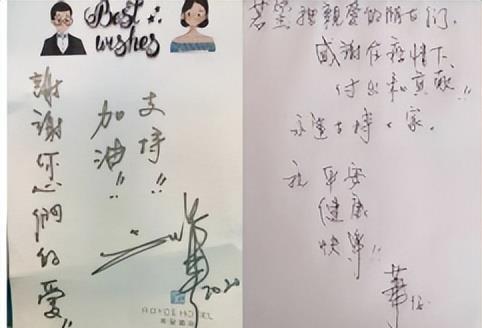 Best
wishes
謝謝你們的愛!!
加油!!
支持!!
2020
親愛的朋友們.
感謝在疫情下、
付出和貢獻!!
永遠支持. 家.
祝 平安
健康
快樂!!